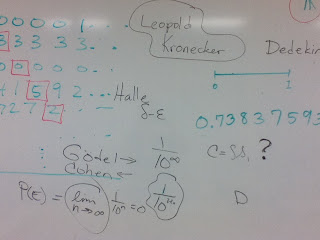 0 0 0 0 1 . . .
3 3 3 3 3 . . .
0 0 0 0 0 . . .
4 1 5 9 2 . . .
7 2 7 2 . . .
Halle
δ-ε
Leopold
Kronecker
Dedekin
0 1
0.73837593
Gödel → 1/10^∞
Cohen
C = ?
P(E) = lim n→∞ 1/10ⁿ = 0
D